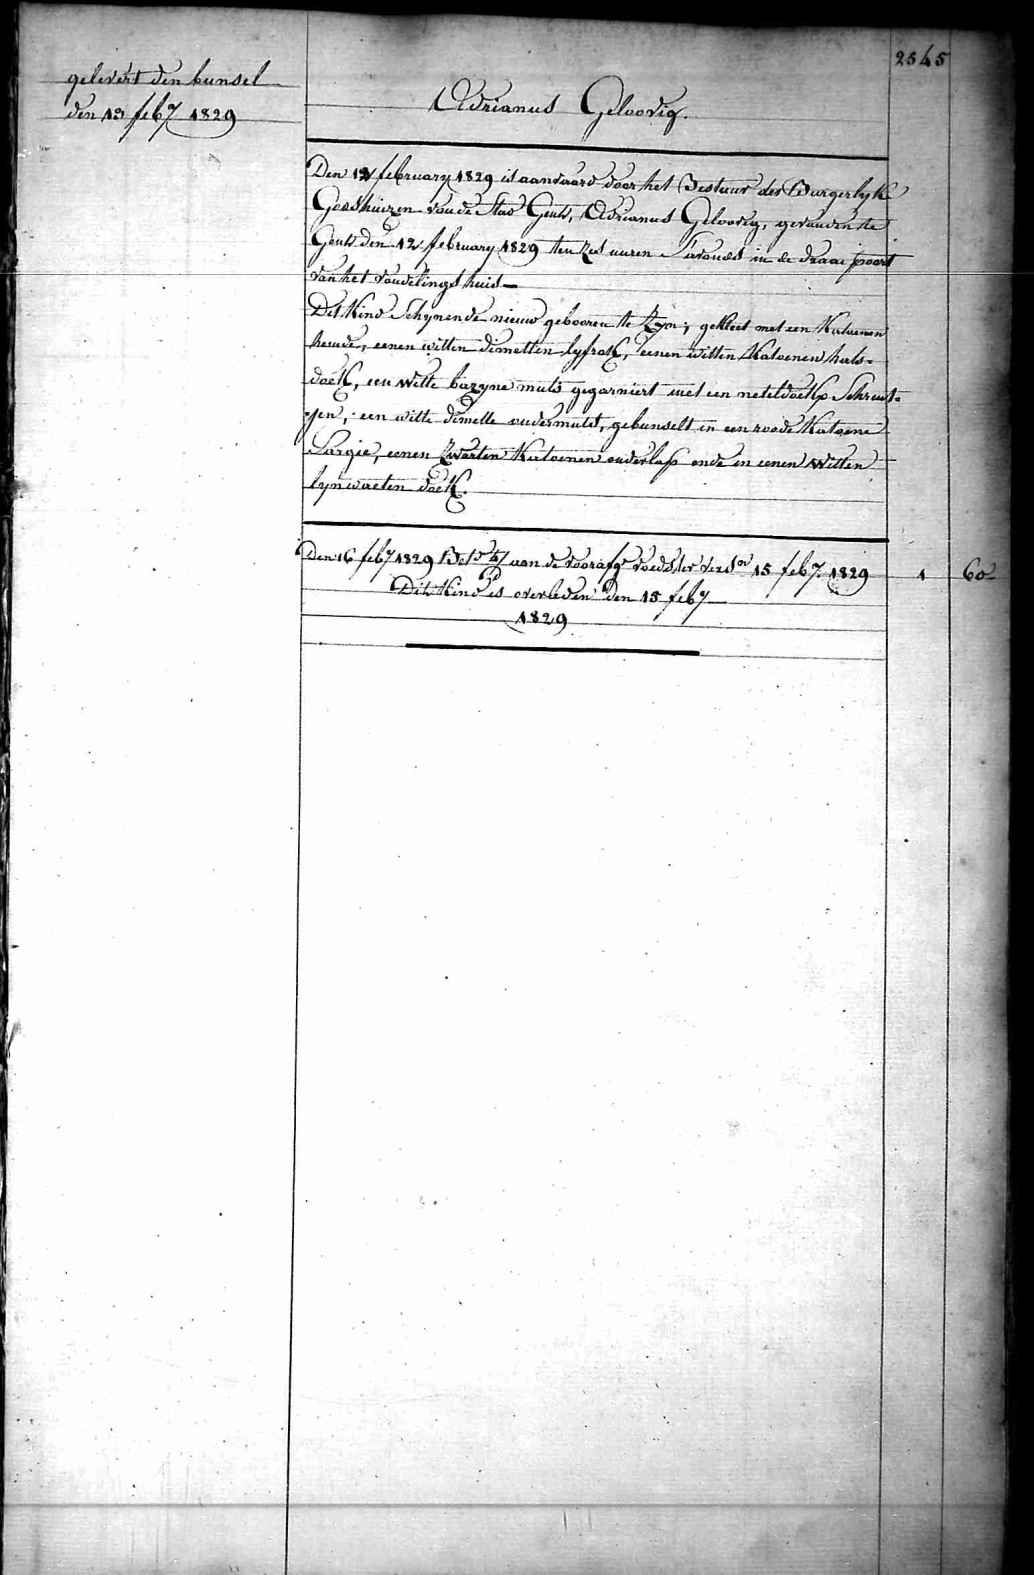 2545
gelevert den bunsel
den 13 feb.y 1829
Adrianus Geloovig.
Den 12 february 1829 is aanvaard door het Bestuur der Burgerlyke
Godshuizen van de Stad Gent, Adrianus Geloovig, gevonden te
Gent den 12 february 1829 ten zes uuren S'avonds in de draai poort
van het vondelings huis
Dit Kind Schynende nieuw gebooren te Zyn; gekleet met een Katoenen
hemde, eenen witten dimetten lyfrok, eenen witten Katoenen hals-
doek, een witte bazyne muts gegarniert met een neteldoekx Schreut-
jen, een witte dimette ondermuts, gebunselt in een roode Katoene
Sargie, eenen Zwarten Katoenen onderlap ende in eenen Witten
lynwaeten doek.
Den 16 feb.y 1829 aan de voorafg.e voedster vers.on 15 feb.y 1829 1 60
Dit Kind is overleden den 15 feb.y
1829